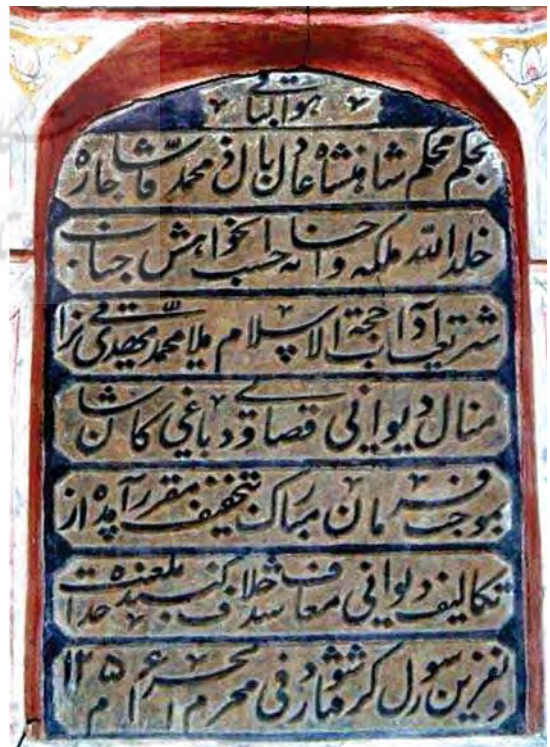 هو الباقی
بحکم محکم شاهنشاه عادل باذل محمد شاه قاجار
خلد الله ملکه و احسانه حسب الخواهش جناب
شریعتمآب حجة الاسلام ملا محمد مهدی نراقی
منال دیوانی قصابی و دباغی کاشان
بموجب فرمان مبارک بتخفیف مقرر آمده از
تکالیف دیوانی معاف خلاف کننده بلعنت خدا
و نفرین رسول گرفتار شود فی محرم الحرام ۱۲۵